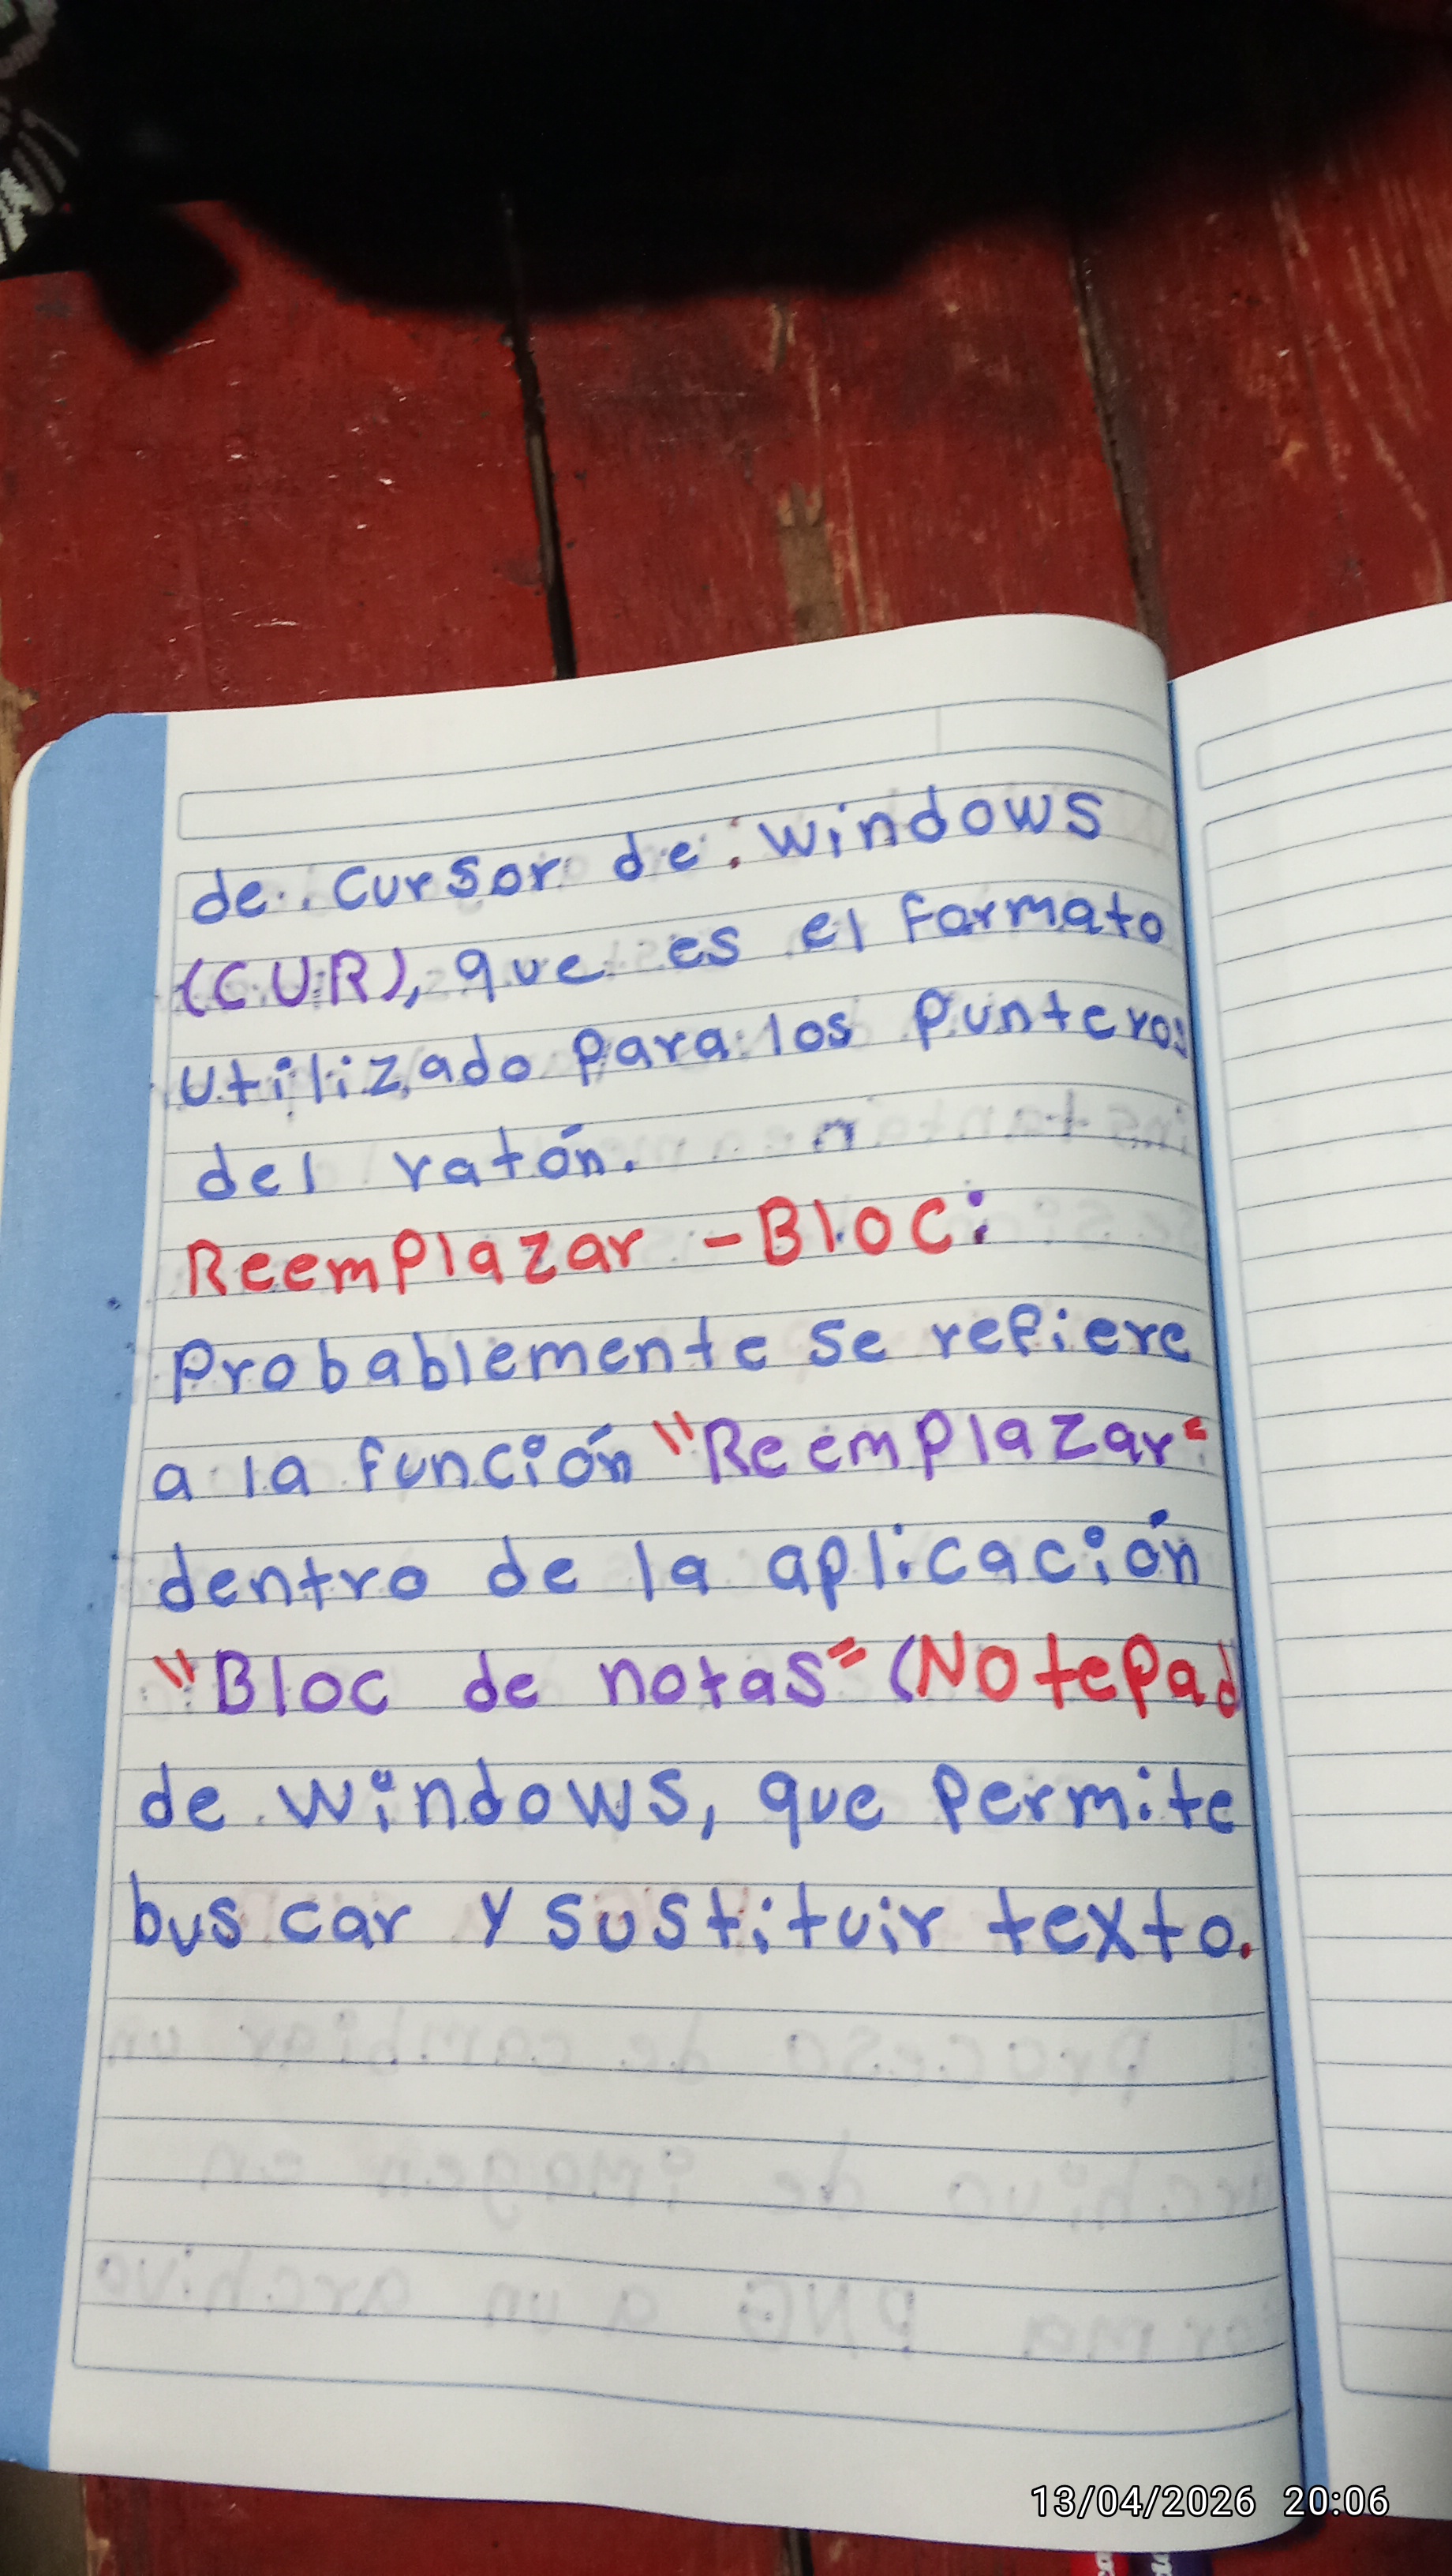 de. cursor de: windows
(CUR), que es el formato
utilizado para los punteros
del ratón.
Reemplazar - Bloc:
Probablemente se refiere
a la función "Reemplazar"
dentro de la aplicación
"Bloc de notas" (Notepad
de windows, que permite
buscar y sustituir texto.
13/04/2026 20:06